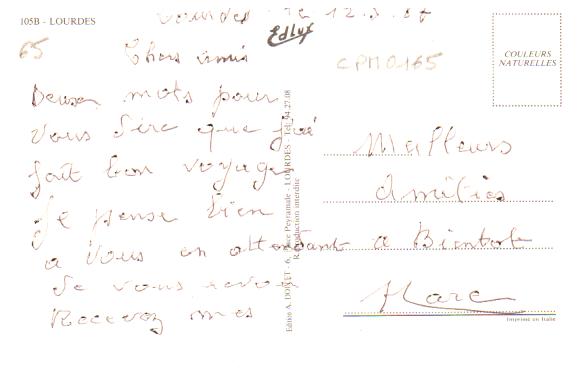 105B - LOURDES
Lourdes le 12.9.87
65
Chers amis
Deux mots pour
vous dire que j'ai
fait bon voyage
je pense bien
a vous en attendant
de vous revoir
Recevez mes
Edluf
CPM0165
COULEURS
NATURELLES
Meilleurs
Amitiés
a Bientot
Marc
Editor A. DOUCET - 6, Place Peyramale - LOURDES - Tél. 94.27.08
Reproduction interdite
Imprimé en Italie